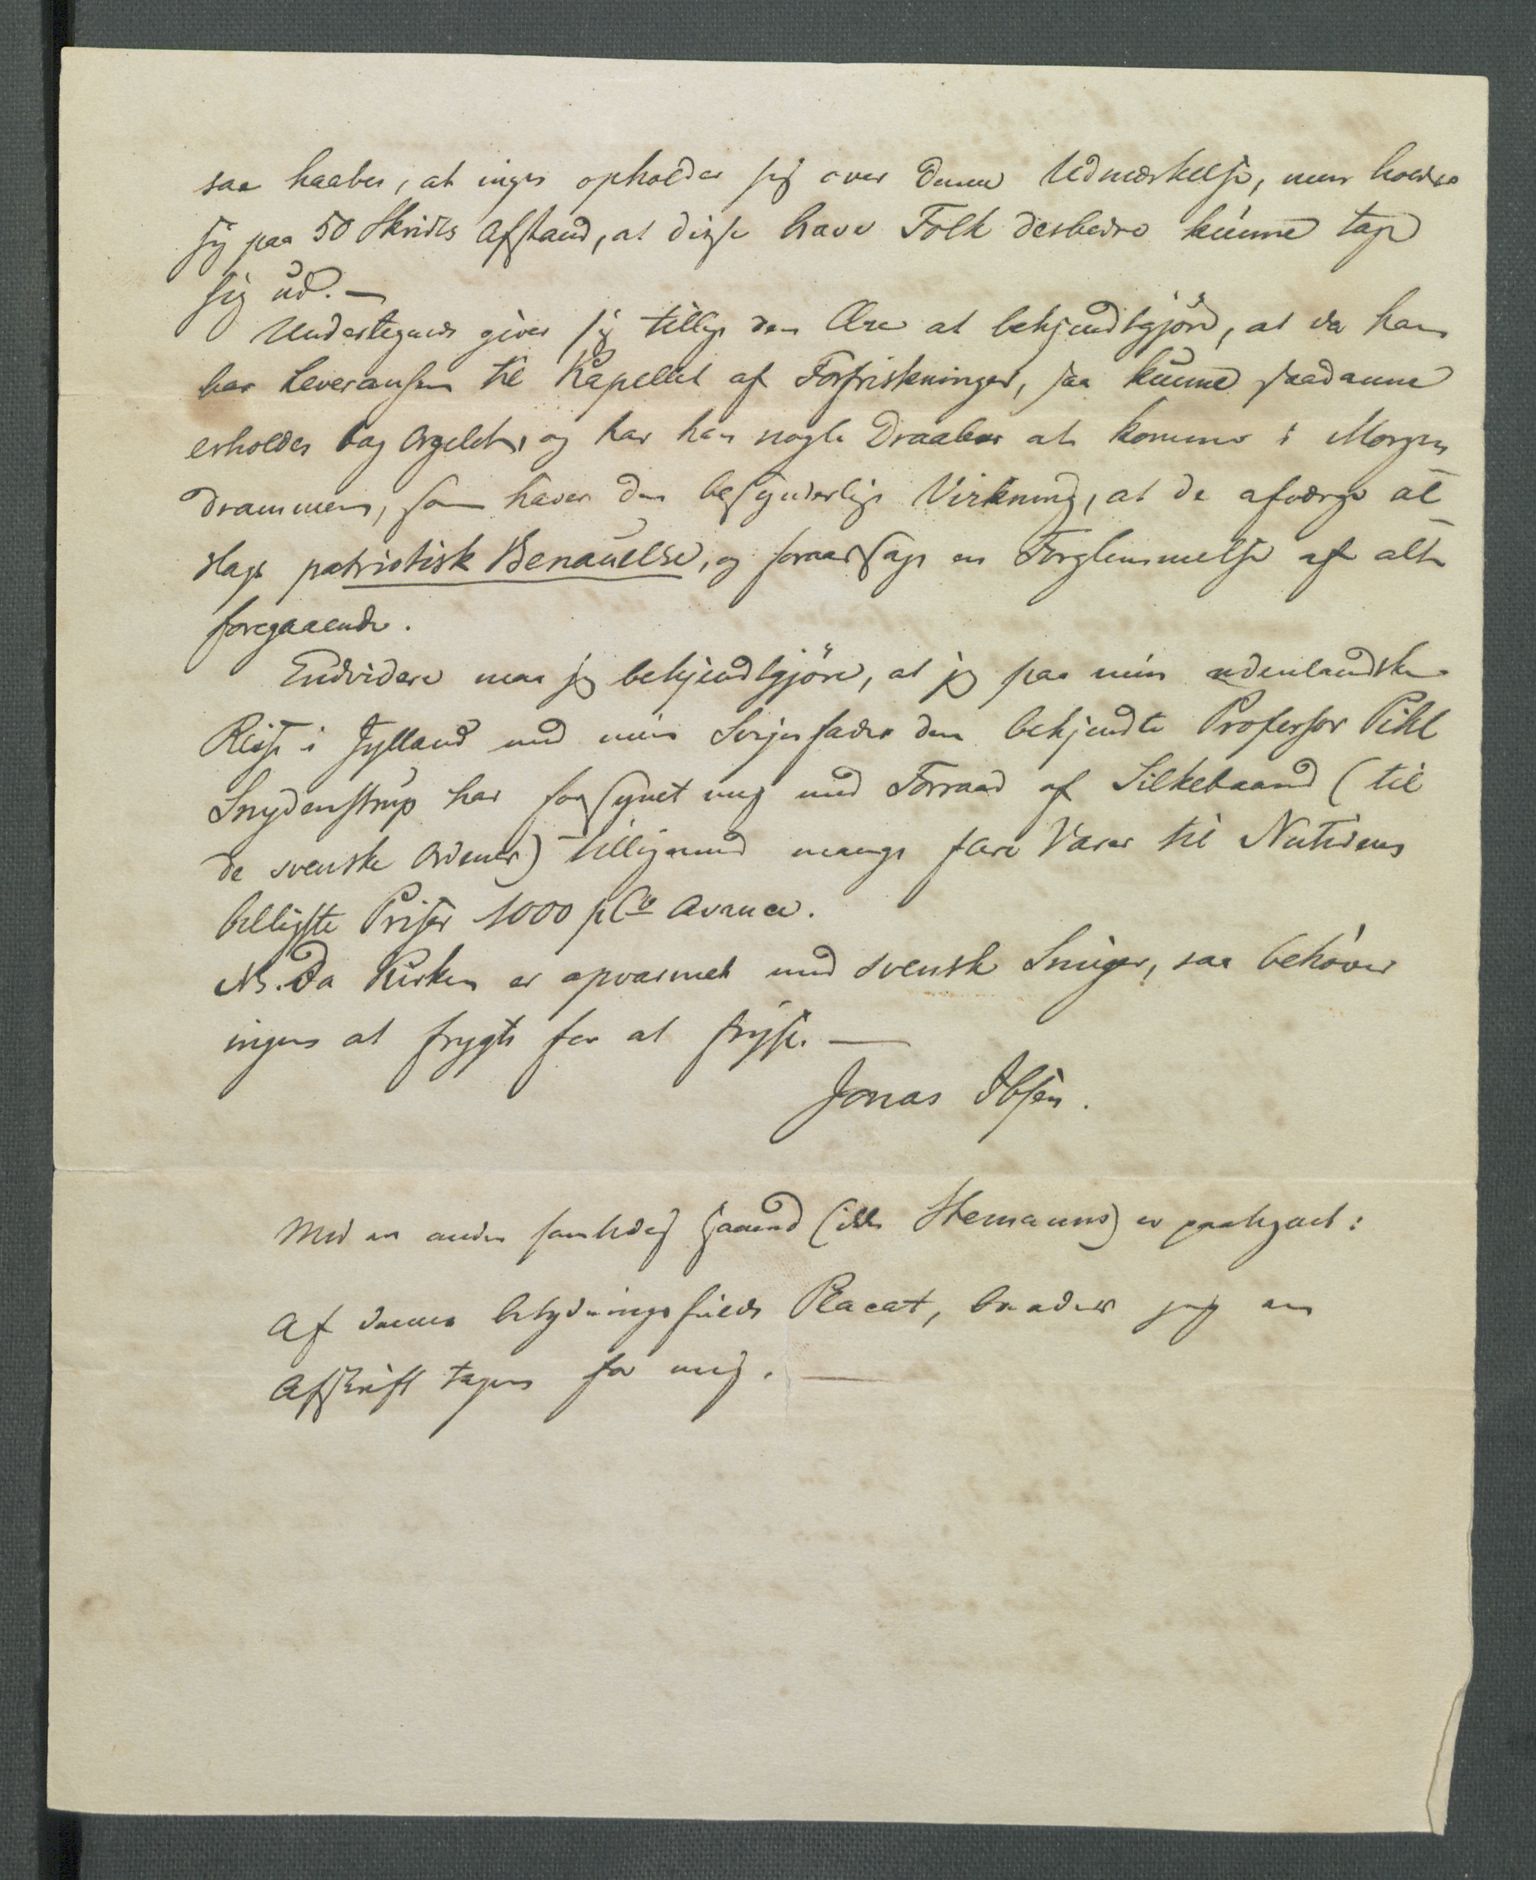 saa haabes, at ingen opholder sig over denne Udmærkelse, men holder
sig paa 50 Skridts Afstand, at disse brave Folk desbedre kunne tage
sig ud. —
Undertegnede giver sig tillige den Ære at bekjendtgjöre, at da han
har Leveransen til Kapellet af Forfriskninger, saa kunne saadanne
erholdes bag Orgelet, og har han nogle Draaber at komme i Morgen
drammen, som haver den besynderlige Virkning, at de afværge al
slags patriotisk Benauelse, og foraarsage en Forglemmelse af alt
foregaaende.
Endvidere maa jeg bekjendtgjöre, at jeg paa min udenlandske
Reise i Jylland med min Svigerfader den bekjendte Professor Pihl
Snydenstrup har forsynet mig med Forraad af Silkebaand (til
de svenske Ordener) tilligemed mange flere Varer til Nutidens
billigste Priser 1000 pCto Avance.
NB. Da Kirken er opvarmet med svensk Smiger, saa behöver
ingen at frygte for at fryse. —
Jonas Ibsen.
Med en anden samtidig Haand (ikke Stemanns) er paategnet:
Af denne betydningsfulde Placat, beder jeg en
Afskrift tagen for mig. —